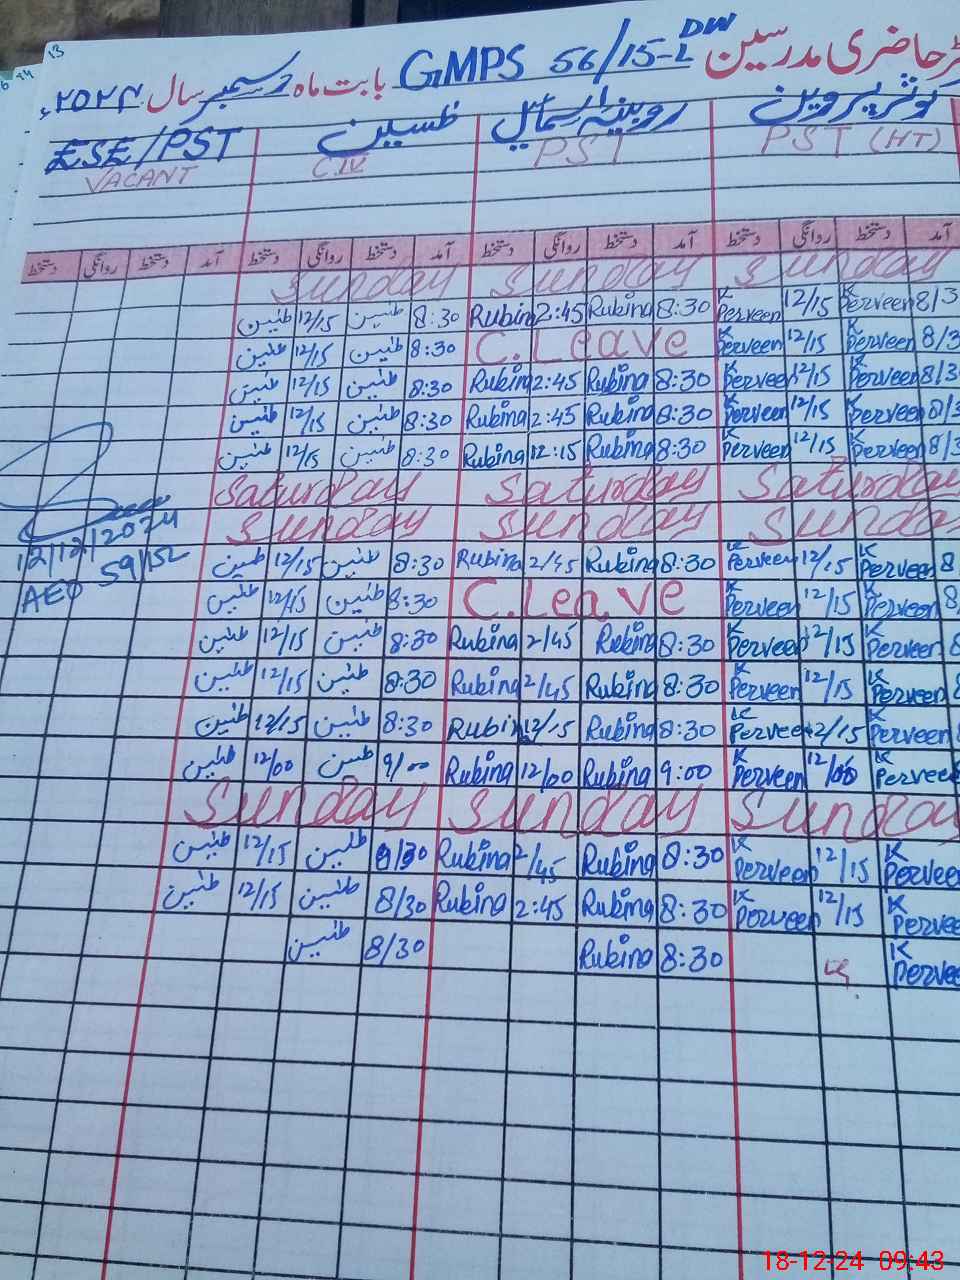 حاضری مدرسین GMPS 56/15-L DW بابت ماہ دسمبر سال ۲۰۲۴ء
پروین روبینہ ESE/PST
PST (HT) PST C.IV VACANT
آمد دستخط روانگی دستخط آمد دستخط روانگی دستخط آمد دستخط روانگی دستخط آمد دستخط روانگی دستخط
Sunday Sunday Sunday
طنین 12/15 طنین 8:30 Rubina 2:45 Rubina 8:30 K Perveen 12/15 K Perveen 8/3
طنین 12/15 طنین 8:30 C.Leave K Perveen 12/15 K Perveen 8/3
طنین 12/15 طنین 8:30 Rubina 2:45 Rubina 8:30 K Perveen 12/15 K Perveen 8/3
طنین 12/15 طنین 8:30 Rubina 2:45 Rubina 8:30 K Perveen 12/15 K Perveen 8/3
طنین 12/15 طنین 8:30 Rubina 12:15 Rubina 8:30 K Perveen 12/15 K Perveen 8/3
Saturday Saturday Saturday
Sunday Sunday Sunda
12/12/2024
AEO 59/15L
طنین 12/15 طنین 8:30 Rubina 2/45 Rubina 8:30 K Perveen 12/15 K Perveen 8
طنین 12/15 طنین 8:30 C.Leave K Perveen 12/15 K Perveen 8
طنین 12/15 طنین 8:30 Rubina 2/45 Rubina 8:30 K Perveen 12/15 K Perveen 8
طنین 12/15 طنین 8:30 Rubina 2/45 Rubina 8:30 K Perveen 12/15 K Perveen 8
طنین 12/15 طنین 8:30 Rubina 12/15 Rubina 8:30 K Perveen 12/15 K Perveen 8
طنین 12/00 طنین 9/00 Rubina 12/00 Rubina 9:00 K Perveen 12/00 K Pervee
Sunday Sunday Sunday
طنین 12/15 طنین 8/30 Rubina 2/45 Rubina 8:30 K Perveen 12/15 K Perveen
طنین 12/15 طنین 8/30 Rubina 2:45 Rubina 8:30 K Perveen 12/15 K Perveen
طنین 8/30 Rubina 8:30 K Pervee
18-12-24 09:43